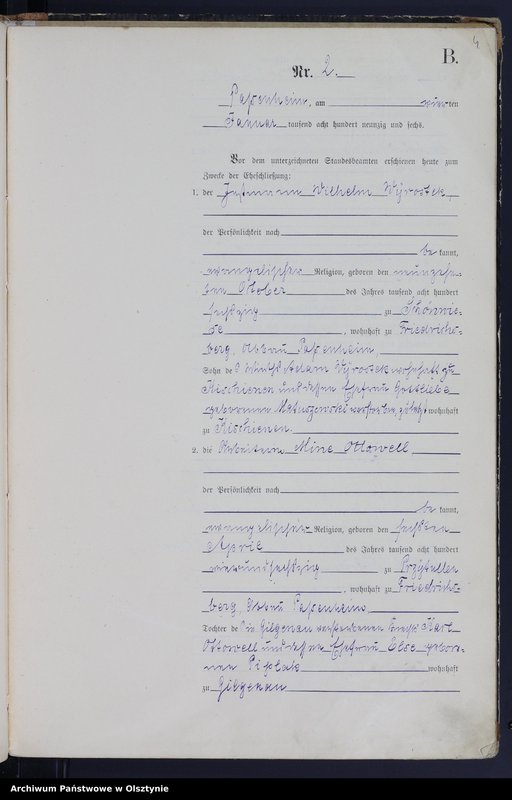 4
B.
Nr. 2.
Passenheim, am vierten
Januar tausend acht hundert neunzig und sechs.
Vor dem unterzeichneten Standesbeamten erschienen heute zum
Zwecke der Eheschließung:
1. der Instmann Wilhelm Wyrostek,
der Persönlichkeit nach
be kannt,
evangelischer Religion, geboren den neunzehn-
ten October des Jahres tausend acht hundert
sechzig zu Schönwie-
se, wohnhaft zu Friedrichs-
berg, Abbau Passenheim,
Sohn des Adam Wyrostek wohnhaft zu
Kischienen und dessen Ehefrau Gottliebe
geborenen Matuszewski verstorben, zuletzt wohnhaft
zu Kischienen.
2. die Arbeiterin Mine Ottowell,
der Persönlichkeit nach
be kannt,
evangelischer Religion, geboren den sechsten
April des Jahres tausend acht hundert
vierundsechzig zu Przytullen
, wohnhaft zu Friedrichs-
berg, Abbau Passenheim,
Tochter des in Gilgenau verstorbenen Karl
Ottowell und dessen Ehefrau Else gebore-
nen wohnhaft
zu Gilgenau
Archiwum Państwowe w Olsztynie